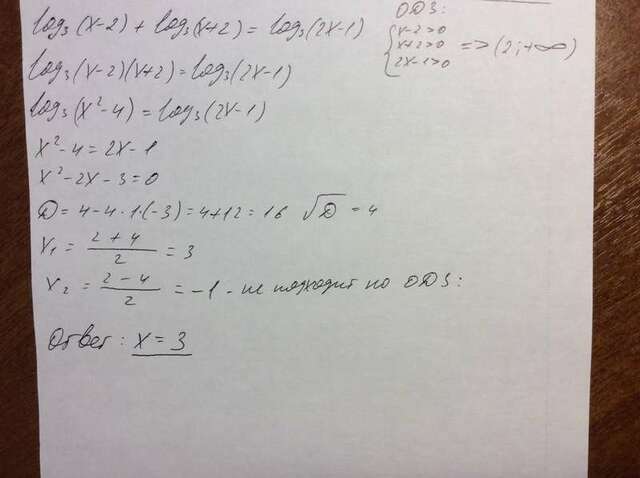 log₃(x-2) + log₃(x+2) = log₃(2x-1)
ОДЗ:
{x-2>0
x+2>0 => (2; +∞)
2x-1>0
log₃(x-2)(x+2) = log₃(2x-1)
log₃(x²-4) = log₃(2x-1)
x²-4 = 2x-1
x²-2x-3=0
D = 4-4·1·(-3) = 4+12 = 16 √D = 4
x₁ = (2+4)/2 = 3
x₂ = (2-4)/2 = -1 - не подходит по ОДЗ:
Ответ: x = 3